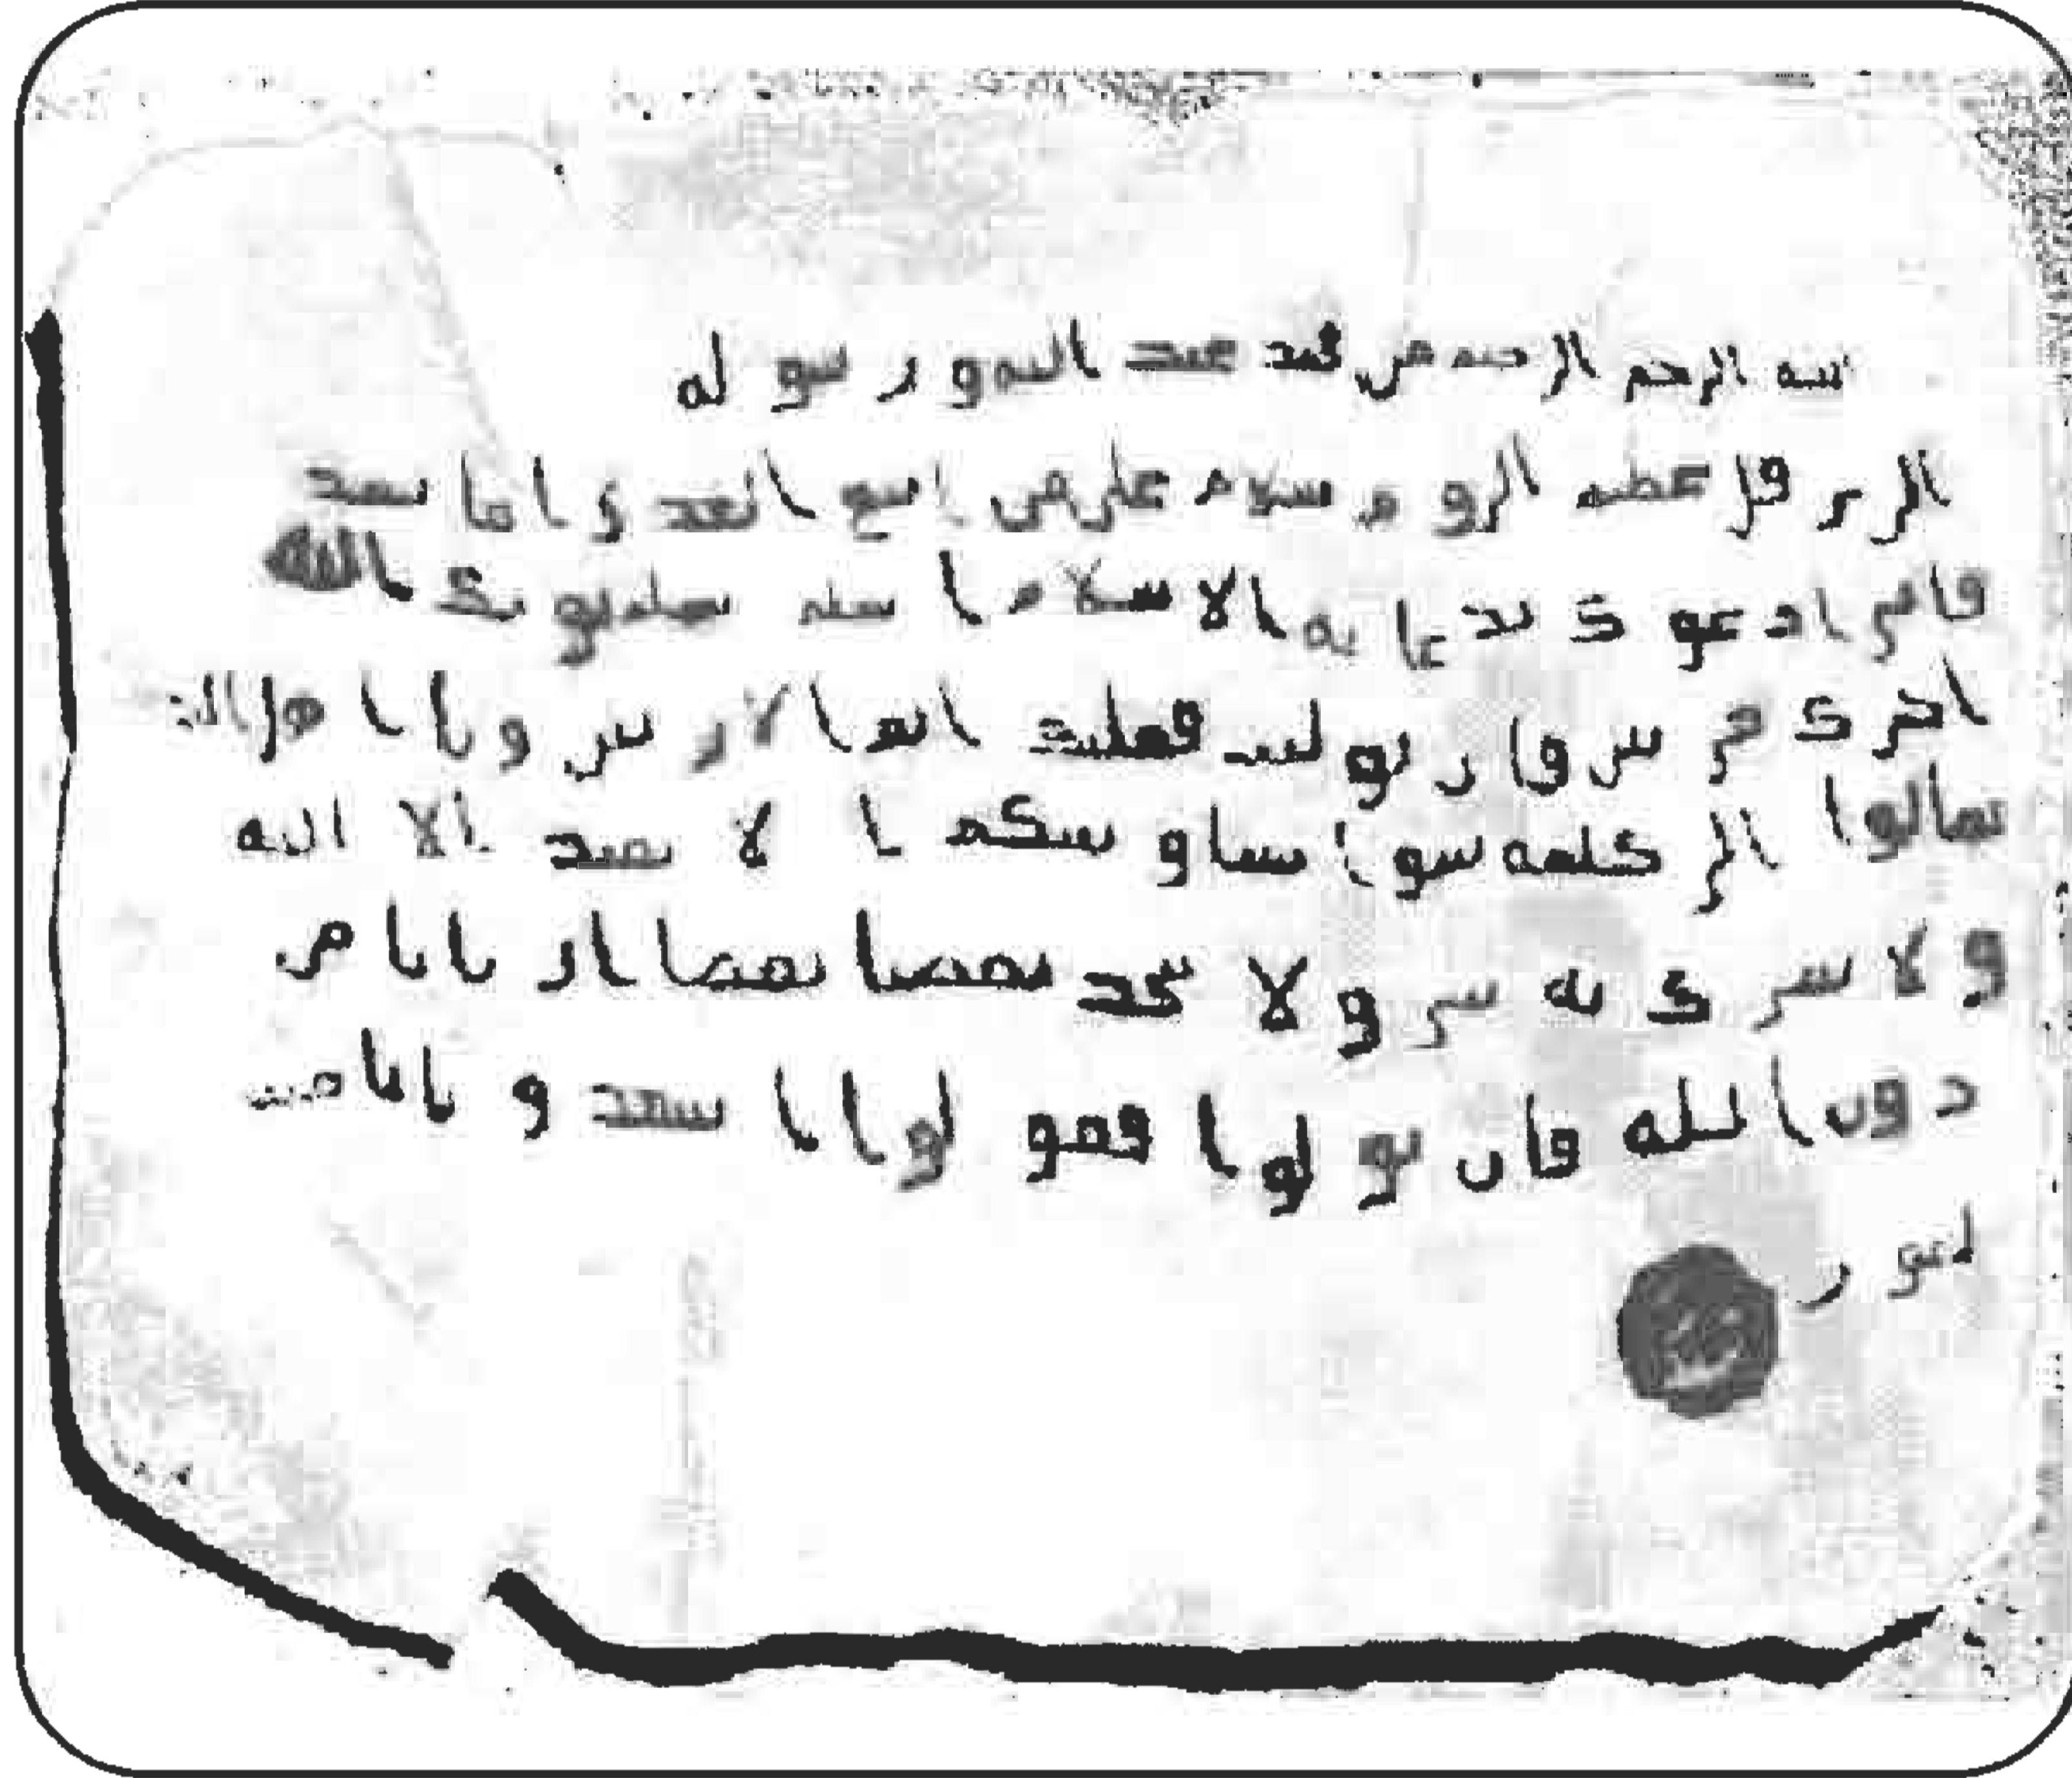 بسم الله الرحمن الرحيم من محمد عبد الله و رسوله
الى هرقل عظيم الروم سلام على من اتبع الهدى اما بعد
فانى ادعوك بدعاية الاسلام اسلم تسلم يوتك الله
اجرك مرتين فان توليت فعليك اثم الاريسين ويا اهل الكتاب
تعالوا الى كلمة سوا بيننا و بينكم ا لا نعبد الا الله
و لا نشرك به شيئا و لا يتخذ بعضنا بعضا اربابا من
دون الله فان تولوا فقولوا اشهدوا بانا مسلمون